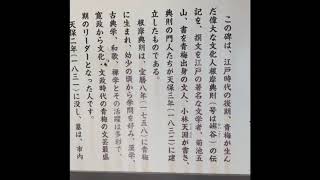 この碑は、江戸時代の後期、青梅が生ん
だ偉大な文化人根岸典則(号は
)の伝
記を、撰文を江戸の著名な文学者、菊池五
山、書を青梅出身の文人、小林天淵が書き、
典則の門人たちが天保三年(一八三二)に建
立したものである。
根岸典則は、宝暦八年(一七五八)に青梅
に生まれ、幼少の頃から学問を好み、漢学、
古典学、和歌、禅学とその活躍は多彩で、
寛政から文化、文政時代の青梅の文芸最盛
期のリーダーとなった人です。
天保二年(一八三一)に没し、墓は、市内